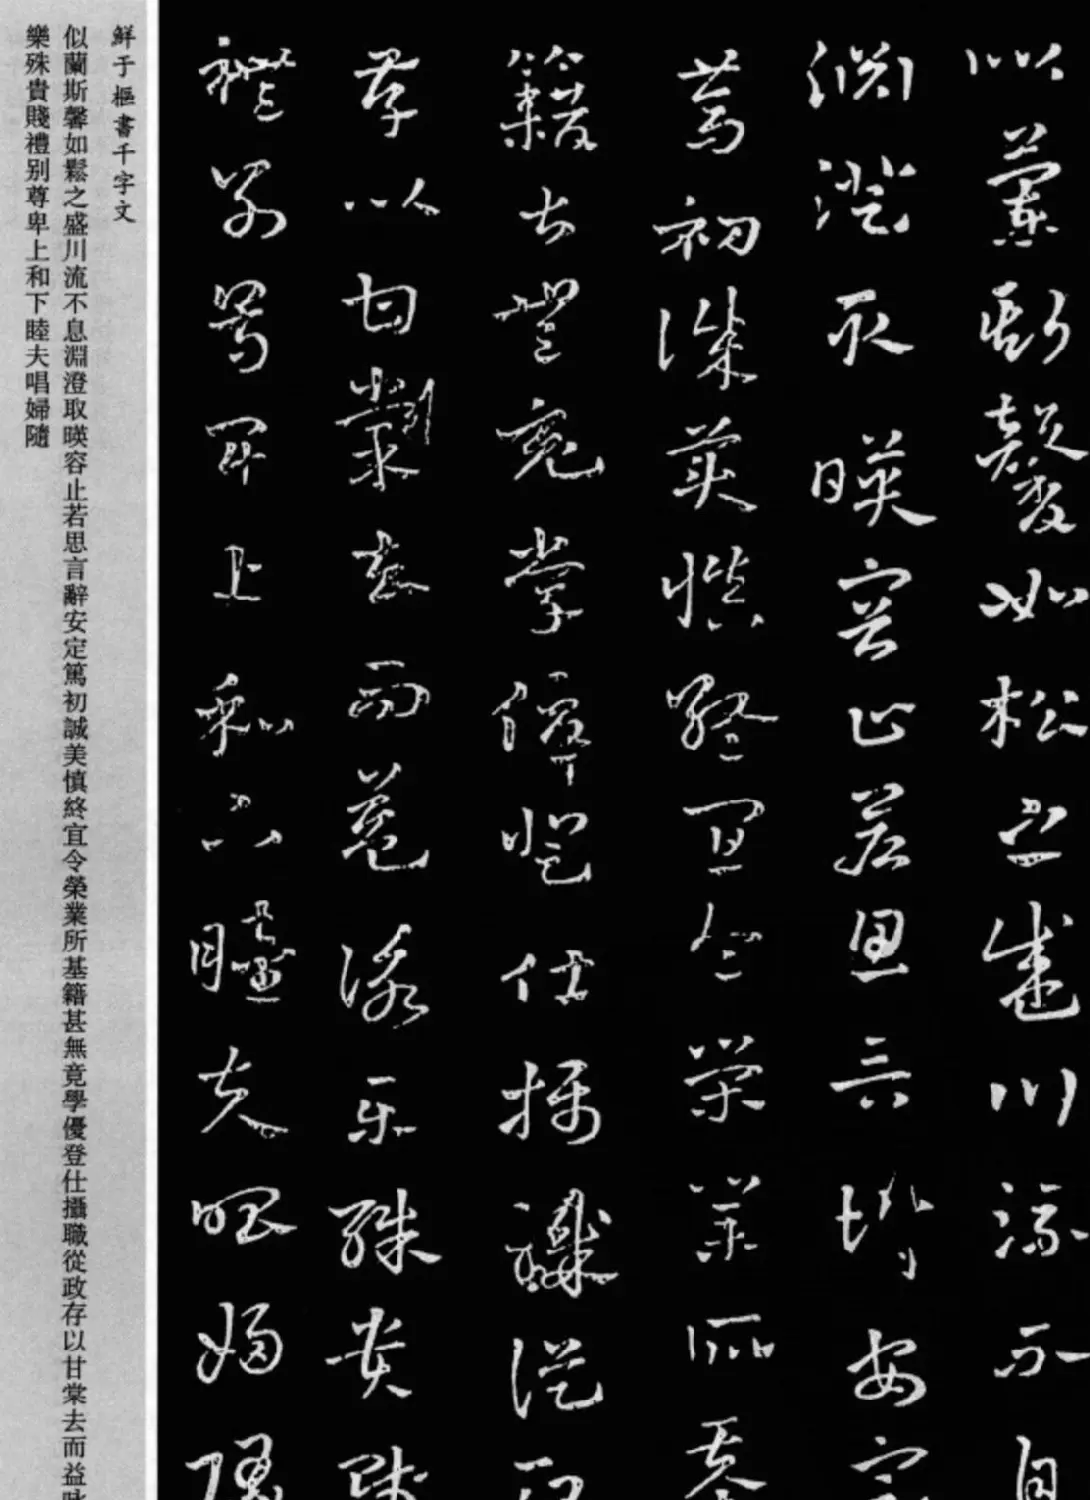 似蘭斯馨如松之盛川流不息
淵澄取暎容止若思言辭安定
篤初誠美慎終宜令榮業所基
籍甚無竟學優登仕攝職從政
存以甘棠去而益詠樂殊貴賤
禮別尊卑上和下睦夫唱婦隨
鮮于樞書千字文
似蘭斯馨如鬆之盛川流不息淵澄取暎容止若思言辭安定篤初誠美慎終宜令榮業所基籍甚無竟學優登仕攝職從政存以甘棠去而益詠
樂殊貴賤禮别尊卑上和下睦夫唱婦隨